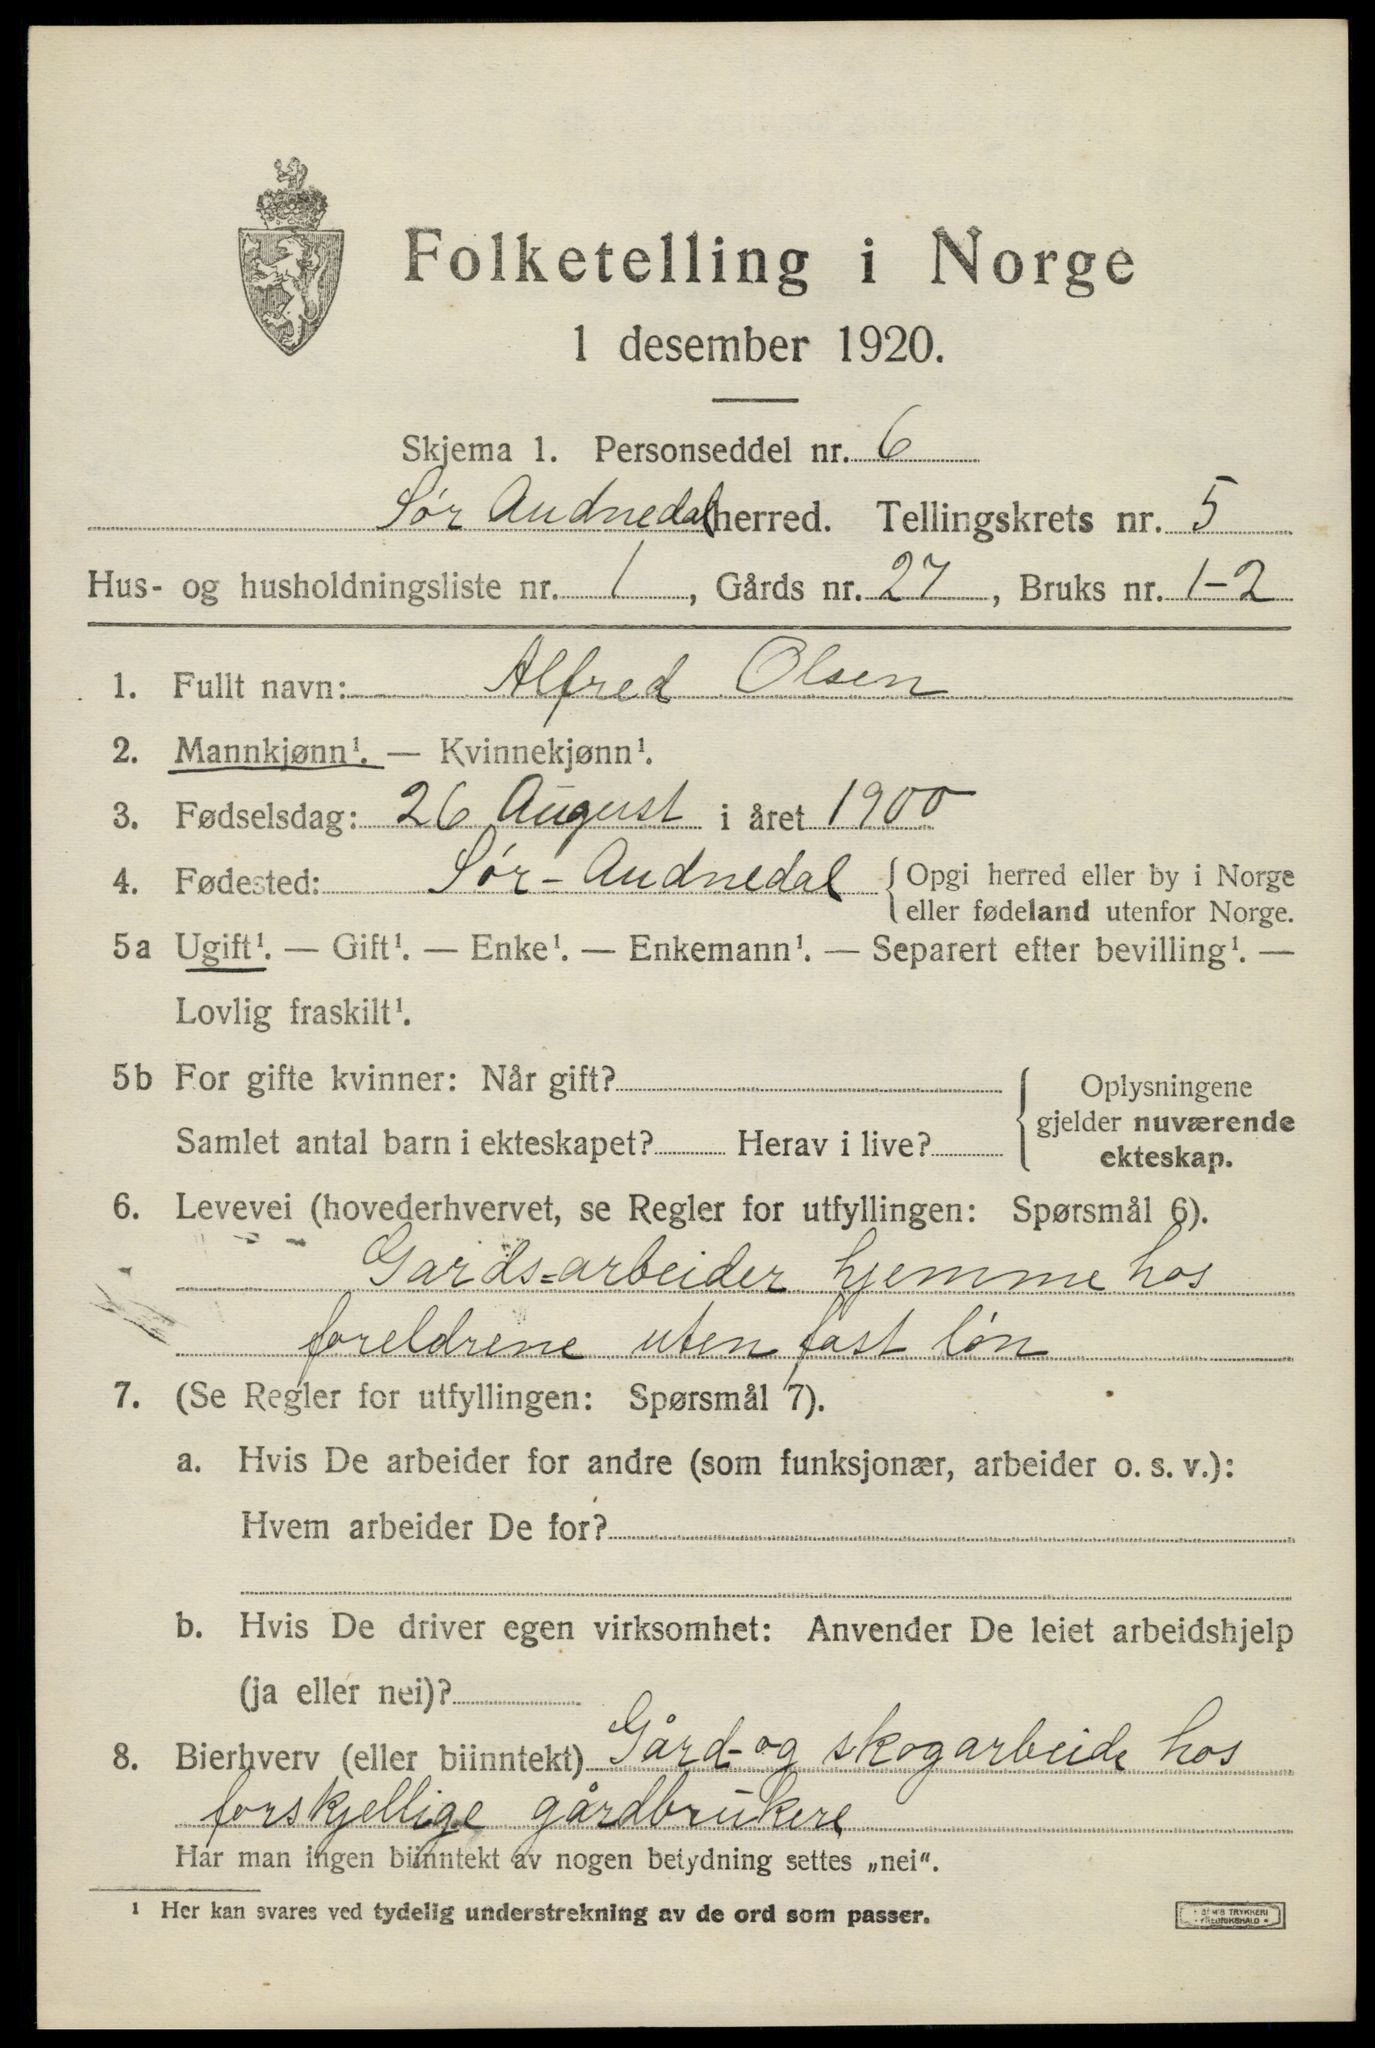 Folketelling i Norge
1 desember 1920.
Skjema 1. Personseddel nr. 6
Sør Audnedal herred. Tellingskrets nr. 5
Hus- og husholdningsliste nr. 1, Gårds nr. 27, Bruks nr. 1-2
1. Fullt navn: Alfred Olsen
2. Mannkjønn¹. — Kvinnekjønn¹.
3. Fødselsdag: 26 August i året 1900
4. Fødested: Sør-Audnedal { Opgi herred eller by i Norge
eller fødeland utenfor Norge.
5a Ugift¹. — Gift¹. — Enke¹. — Enkemann¹. — Separert efter bevilling¹. —
Lovlig fraskilt¹.
5b For gifte kvinner: Når gift?
Samlet antal barn i ekteskapet? Herav i live?
{ Oplysningene
gjelder nuværende
ekteskap.
6. Levevei (hovederhvervet, se Regler for utfyllingen: Spørsmål 6).
Gards=arbeider hjemme hos
foreldrene uten fast løn
7. (Se Regler for utfyllingen: Spørsmål 7).
a. Hvis De arbeider for andre (som funksjonær, arbeider o. s. v.):
Hvem arbeider De for?
b. Hvis De driver egen virksomhet: Anvender De leiet arbeidshjelp
(ja eller nei)?
8. Bierhverv (eller biinntekt) Gård- og skogarbeide hos
forskjellige gårdbrukere
Har man ingen biinntekt av nogen betydning settes „nei".
¹ Her kan svares ved tydelig understrekning av de ord som passer.
TRYKKERI
FREDRIKSHALD